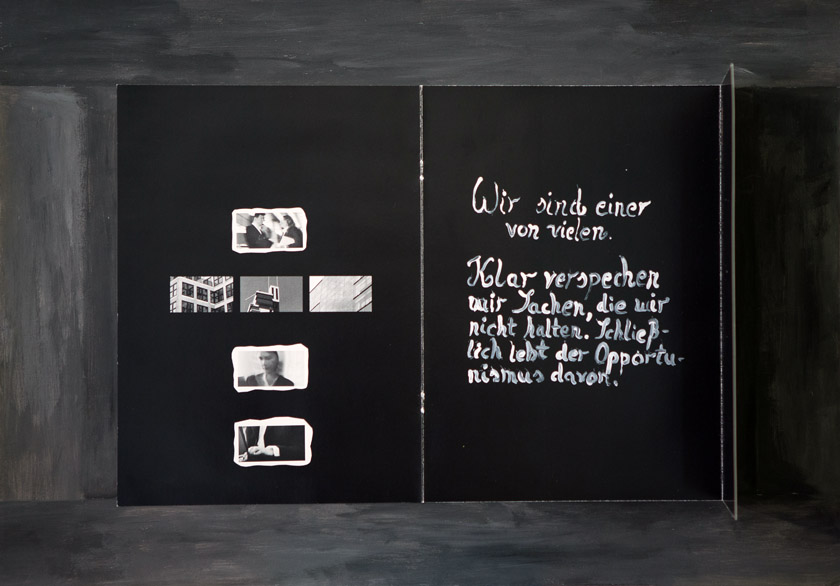 Wir sind einer
von vielen.
Klar verspechen
wir Sachen, die wir
nicht halten. Schließ-
lich lebt der Opportu-
nismus davon.